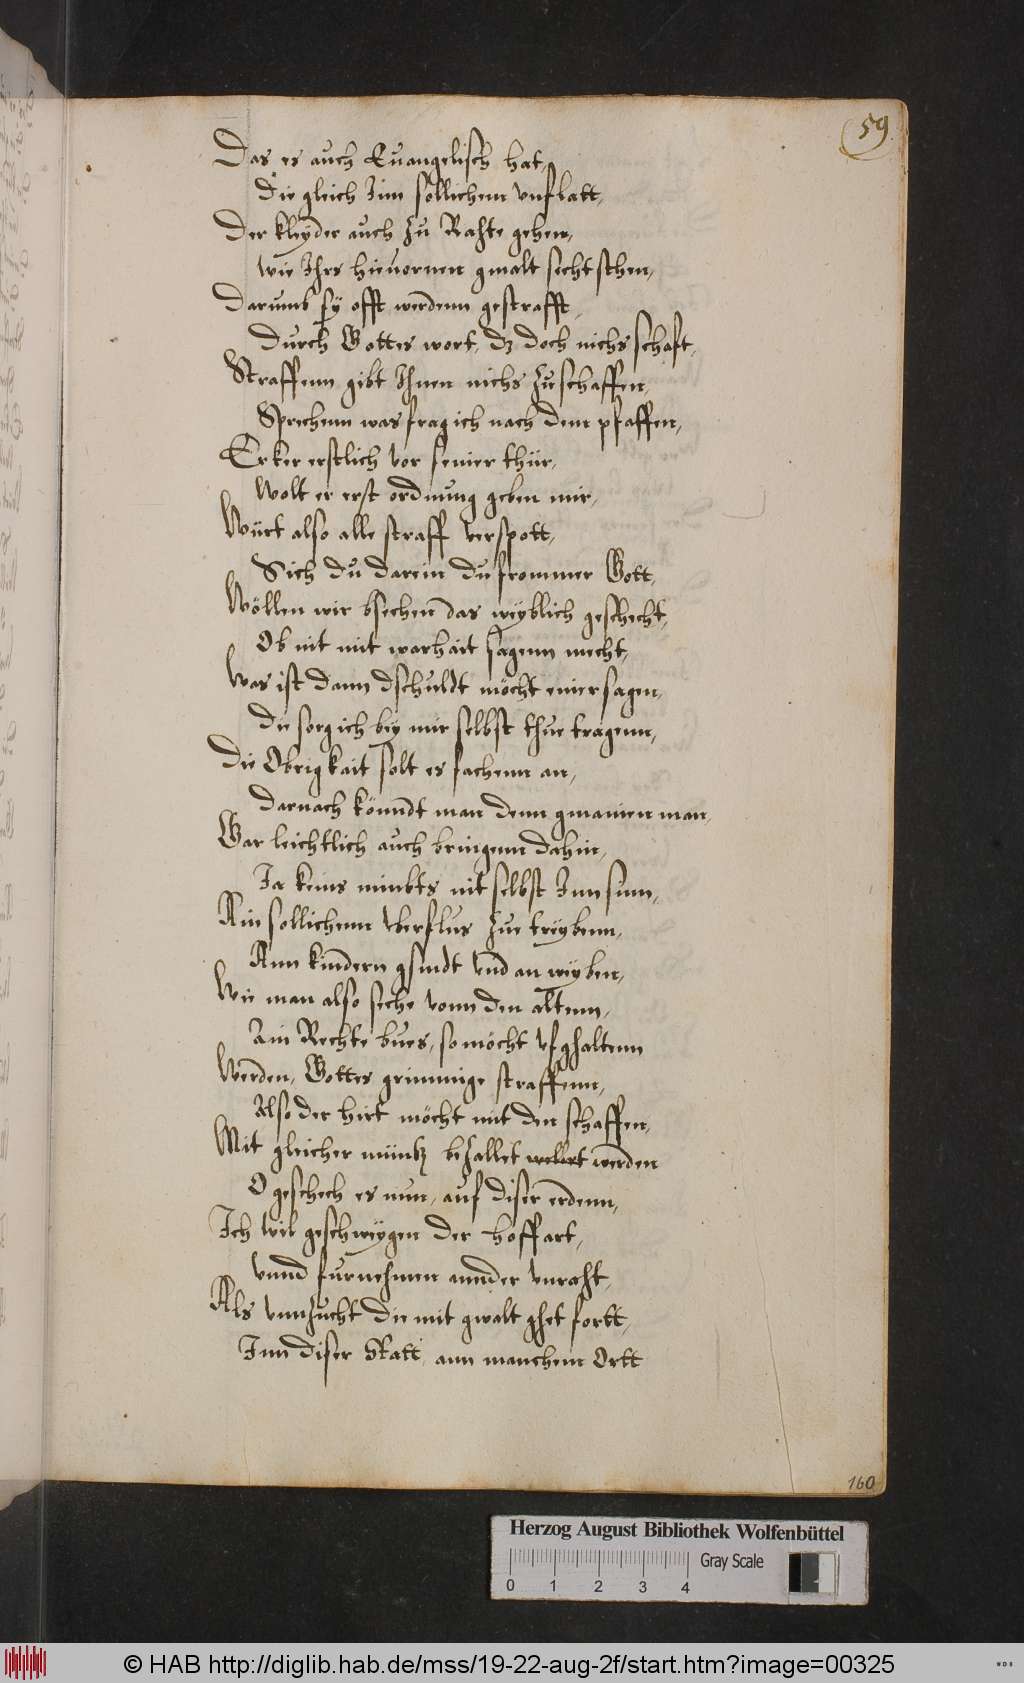 59
Das es auch Euangelisch hat,
die gleich Inn sollichem vnflatt,
Der kleyder auch zu Rahte gehen,
wie Ihrs hieuornen gmalt secht stehen,
Darumb sy offt werdenn gestrafft,
durch Gottes wort, dz doch nichs schaft,
Straffenn gibt Ihnen nichs zuschaffen,
Sprechenn was frag ich nach dem pfaffen,
Er ker erstlich vor seiner thür,
Wolt er erst ordnung geben mir,
Würt also alle straff verspott,
Sich du darein du frommer Gott,
Wöllen wir bsechen das weyblich geschecht,
Ob nit mit warhait sagenn mecht,
Was ist dann dschuldt möcht einer sagen,
die sorg ich bey mir selbst thue tragenn,
Die Obrigkait solt es fachenn an,
darnach könndt man denn gmainen man,
Gar leichtlich auch bringenn dahin,
Ja keins nimbts nit selbst Inn sinn,
Ain sollichenn vberflus zue treybenn,
Ann kindern gsindt vnd an weyben,
Wie man also seche vonn den altenn,
Ain Rechte bues, so möcht vfghaltenn
Werden, Gottes grimmige straffenn,
Also der hirt möcht mit den schaffen,
Mit gleicher müntz bezallet werden
O geschech es nun, auf diser erdenn,
Ich wil geschweygen der hoffart,
vnnd furnehmen annder vnraht,
Als vnnzucht die mit gwalt ghet fortt,
Inn diser Statt, ann manchem Ortt
160
Herzog August Bibliothek Wolfenbüttel
Gray Scale
0 1 2 3 4
© HAB http://diglib.hab.de/mss/19-22-aug-2f/start.htm?image=00325